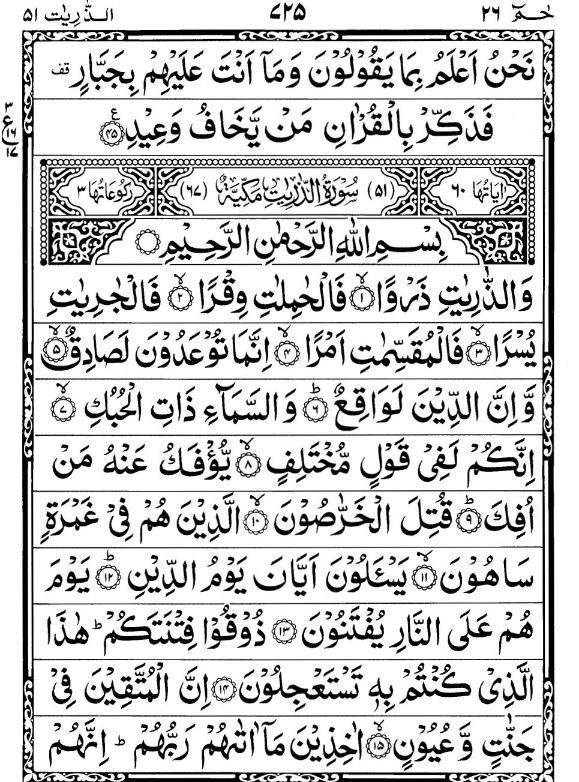 حٰمٓ ٢٦ ٧٢٥ الذّٰریٰت ٥١
نَحْنُ اَعْلَمُ بِمَا يَقُوْلُوْنَ وَمَآ اَنْتَ عَلَيْهِمْ بِجَبَّارٍ قف
فَذَكِّرْ بِالْقُرْاٰنِ مَنْ يَّخَافُ وَعِيْدِ ع ٤٥
٣
ع
١٦
١٧
اٰيَاتُهَا ٦٠ (٥١) سُوْرَةُ الذّٰرِيٰتِ مَكِّيَّةٌ (٦٧) رُكُوْعَاتُهَا ٣
بِسْمِ اللّٰهِ الرَّحْمٰنِ الرَّحِيْمِ
وَالذّٰرِيٰتِ ذَرْوًا ١ۙ فَالْحٰمِلٰتِ وِقْرًا ٢ۙ فَالْجٰرِيٰتِ
يُسْرًا ٣ۙ فَالْمُقَسِّمٰتِ اَمْرًا ٤ۙ اِنَّمَا تُوْعَدُوْنَ لَصَادِقٌ ٥ۙ
وَّاِنَّ الدِّيْنَ لَوَاقِعٌ ٦ؕ وَالسَّمَآءِ ذَاتِ الْحُبُكِ ٧ۙ
اِنَّكُمْ لَفِيْ قَوْلٍ مُّخْتَلِفٍ ٨ۙ يُّؤْفَكُ عَنْهُ مَنْ
اُفِكَ ٩ؕ قُتِلَ الْخَرّٰصُوْنَ ١٠ۙ الَّذِيْنَ هُمْ فِيْ غَمْرَةٍ
سَاهُوْنَ ١١ۙ يَسْـَٔلُوْنَ اَيَّانَ يَوْمُ الدِّيْنِ ١٢ؕ يَوْمَ
هُمْ عَلَى النَّارِ يُفْتَنُوْنَ ١٣ ذُوْقُوْا فِتْنَتَكُمْ ؕ هٰذَا
الَّذِيْ كُنْتُمْ بِهٖ تَسْتَعْجِلُوْنَ ١٤ اِنَّ الْمُتَّقِيْنَ فِيْ
جَنّٰتٍ وَّعُيُوْنٍ ١٥ۙ اٰخِذِيْنَ مَآ اٰتٰىهُمْ رَبُّهُمْ ؕ اِنَّهُمْ